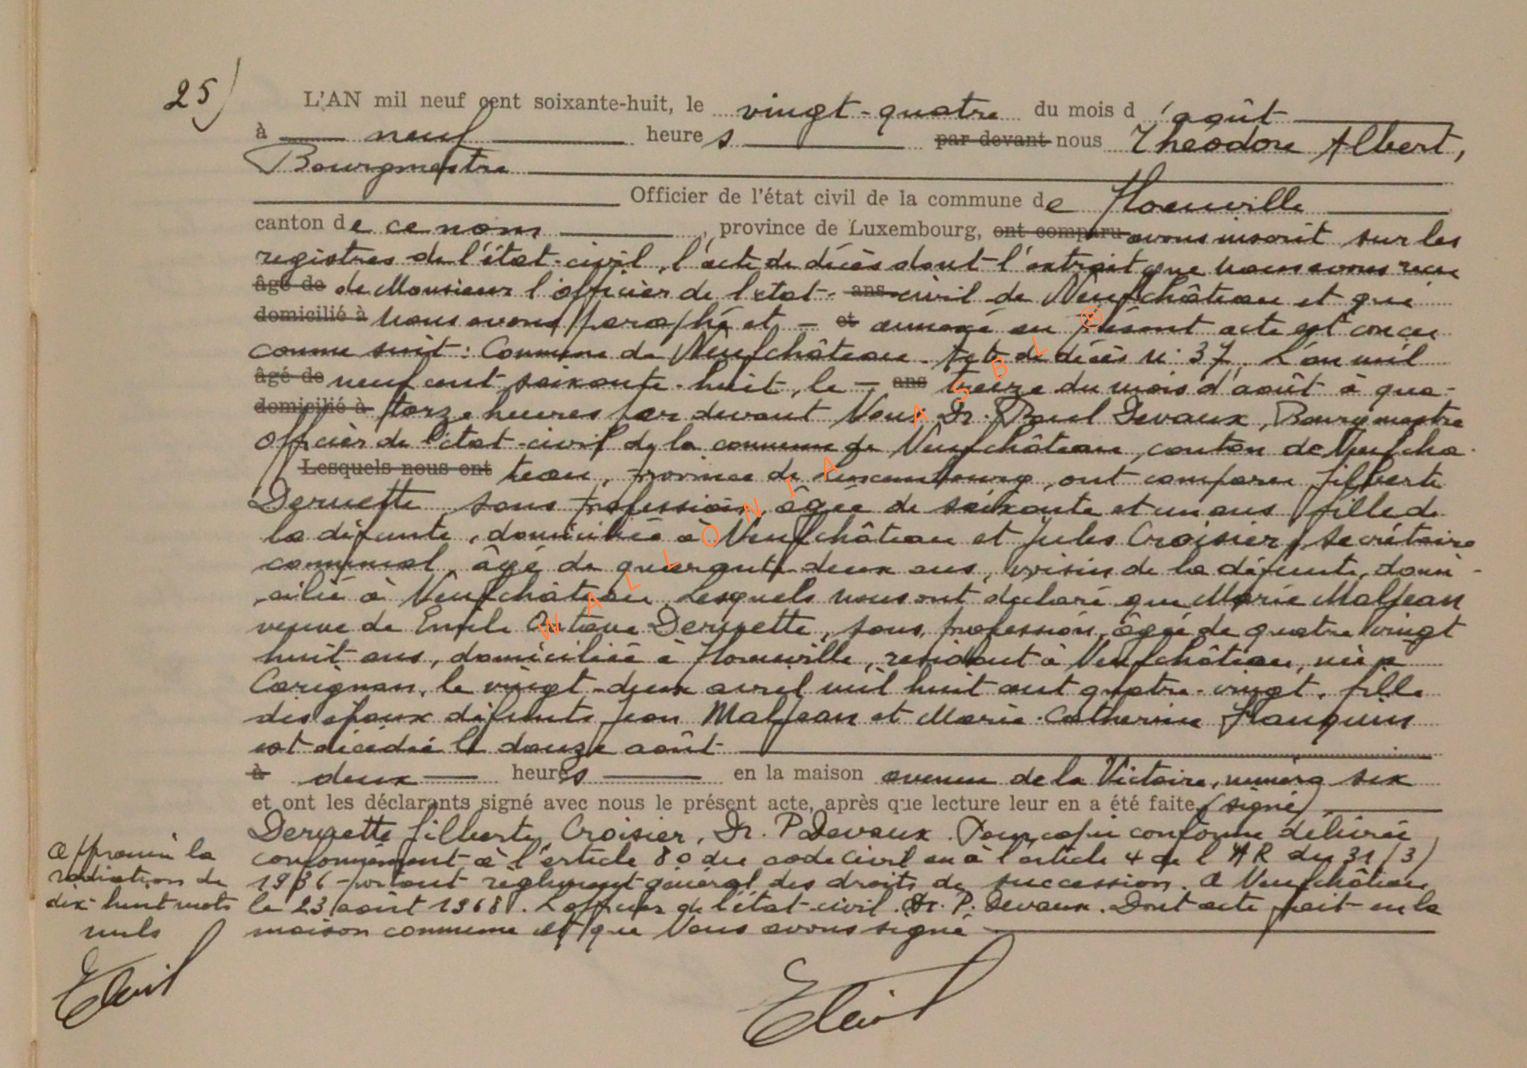 25)
L'AN mil neuf cent soixante-huit, le vingt-quatre du mois d'août
à neuf heures par devant nous Théodore Albert,
Bourgmestre
Officier de l'état civil de la commune de
canton de ce nom, province de Luxembourg, ont comparu avons inscrit sur les
registres de l'état-civil, l'acte de décès dont l'extrait que nous avons reçu
âgé de de Monsieur l'officier de l'état- ans civil de Neufchâteau et que
domicilié à nous avons paraphé et - et annexé au présent acte est conçu
comme suit : Commune de Neufchâteau. Acte de décès n° 37. L'an mil
âgé de neuf cent soixante-huit, le - ans treize du mois d'août à qua-
domicilié à torze heures par devant Nous Dr. Paul Devaux, Bourgmestre
officier de l'état-civil de la commune de Neufchâteau, canton de Neufchâ-
Lesquels nous ont teau, province de Luxembourg, ont comparu Gilberte
sans profession, âgée de soixante et un ans, fille de
la défunte, domiciliée à Neufchâteau et Jules Croisier, secrétaire
communal, âgé de quarante deux ans, voisin de la défunte, domi-
cilié à Neufchâteau. Lesquels nous ont déclaré que Marie Maljean
veuve de Emile Octave sans profession, âgée de quatre vingt
huit ans, domiciliée à résidant à Neufchâteau, née à
Carignan, le vingt-deux avril mil huit cent quatre-vingt, fille
des époux défunts Jean Maljean et Marie-Catherine
est décédée le douze août
à deux heures en la maison avenue de la Victoire, numéro six
et ont les déclarants signé avec nous le présent acte, après que lecture leur en a été faite (signé)
Gilberte, Croisier, Dr. P. Devaux. Pour copie conforme délivrée
conformément à l'article 80 du code civil en à l'article 4 de l'AR du 31/3/
1936 portant règlement général des droits de succession. A Neufchâteau
le 23 août 1968. L'officier de l'état-civil. Dr. P. Devaux. Dont acte fait en la
maison commune et que Nous avons signé
Approuvé la
radiation de
dix-huit mots
nuls
WALLONIA ASBL ©